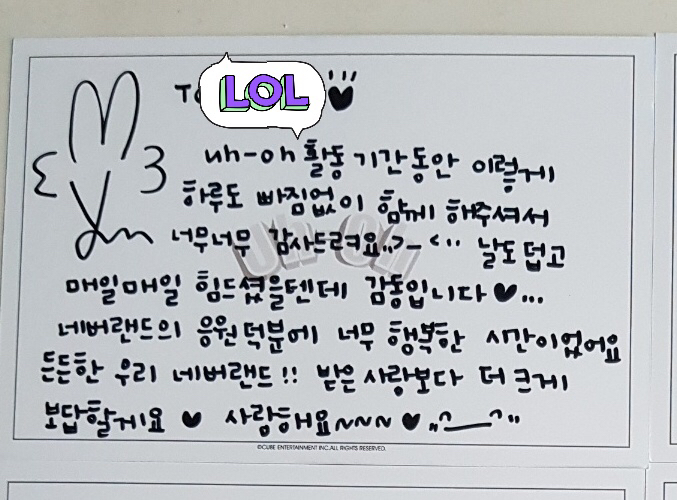 To
LOL
uh-oh 활동 기간동안 이렇게
하루도 빠짐없이 함께 해주셔서
너무너무 감사드려요 〃>_<〃 날도 덥고
매일매일 힘드셨을텐데 감동입니다♥...
네버랜드의 응원덕분에 너무 행복한 시간이었어요
든든한 우리 네버랜드!! 받은 사랑보다 더 크게
보답할게요 ♥ 사랑해요~~~~♥〃^__^〃
Uh-Oh
©CUBE ENTERTAINMENT INC.ALL RIGHTS RESERVED.